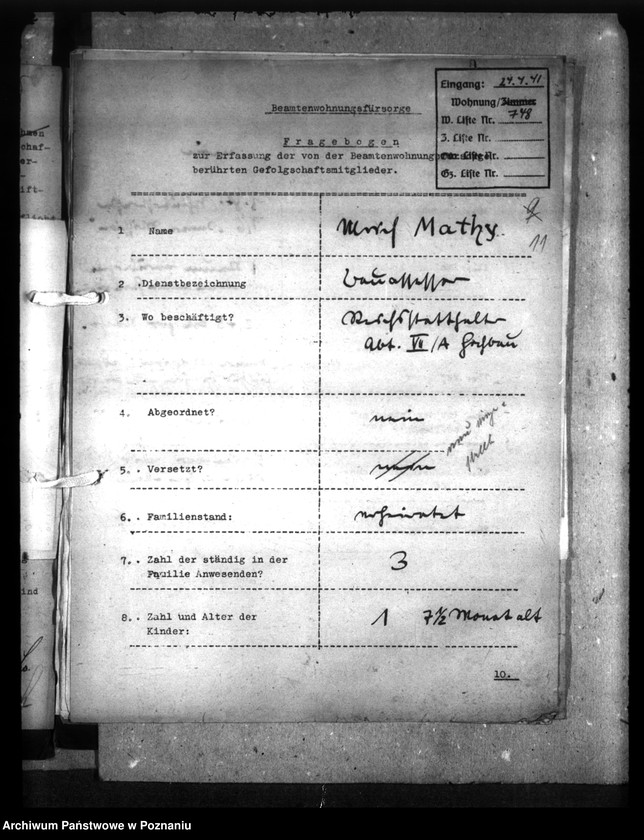 Eingang: 24.4.41
Wohnung/Zimmer
W. Liste Nr. 748
Z. Liste Nr.
Liste Nr.
Gz. Liste Nr.
Beamtenwohnungsfürsorge
Fragebogen
zur Erfassung der von der Beamtenwohnung
berührten Gefolgschaftsmitglieder.
9
11
1 Name Mathy
2 .Dienstbezeichnung Bauassessor
3. Wo beschäftigt? Reichsstatthalter
Abt. VI/A Hochbau
4. Abgeordnet? nein
neu einge-
stellt
5. . Versetzt? nein
6. . Familienstand: verheiratet
7. . Zahl der ständig in der
Familie Anwesenden? 3
8. . Zahl und Alter der
Kinder: 1 7½ Monat alt
10.
Archiwum Państwowe w Poznaniu